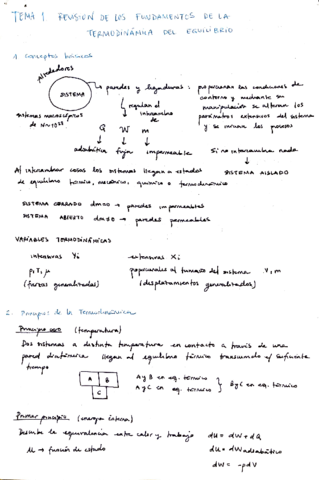 TEMA 1 REVISIÓN DE LOS FUNDAMENTOS DE LA
TERMODINÁMICA DEL EQUILIBRIO
1. Conceptos básicos
Alrededores
SISTEMA
→ paredes y ligaduras: proporcionan las condiciones de
contorno y mediante su
manipulación se alteran los
parámetros externos del sistema
y se inician los procesos
regulan el
intercambio
de
sistemas macroscópicos
de N~10²³
Q W m
↓ ↓ ↓
adiabática fija impermeable
Si no intercambia nada
↓
SISTEMA AISLADO
Al intercambiar cosas los sistemas llegan a estados
de equilibrio térmico, mecánico, químico o termodinámico
SISTEMA CERRADO dm=0 → paredes impermeables
SISTEMA ABIERTO dm≠0 → paredes permeables
VARIABLES TERMODINÁMICAS
intensivas Yi extensivas Xi
p, T, μ proporcionales al tamaño del sistema V, m
(fuerzas generalizadas) (desplazamientos generalizados)
2. Principios de la Termodinámica
Principio cero (temperatura)
Dos sistemas a distinta temperatura en contacto a través de una
pared diatérmica llegan al equilibrio térmico transcurrido el suficiente
tiempo
A B
C
A y B en eq. térmico
A y C en eq. térmico } B y C en eq. térmico
Primer principio (energía interna)
Describe la equivalencia entre calor y trabajo dU = dW + dQ
U → función de estado dU = dW adiabático
dW = -pdV